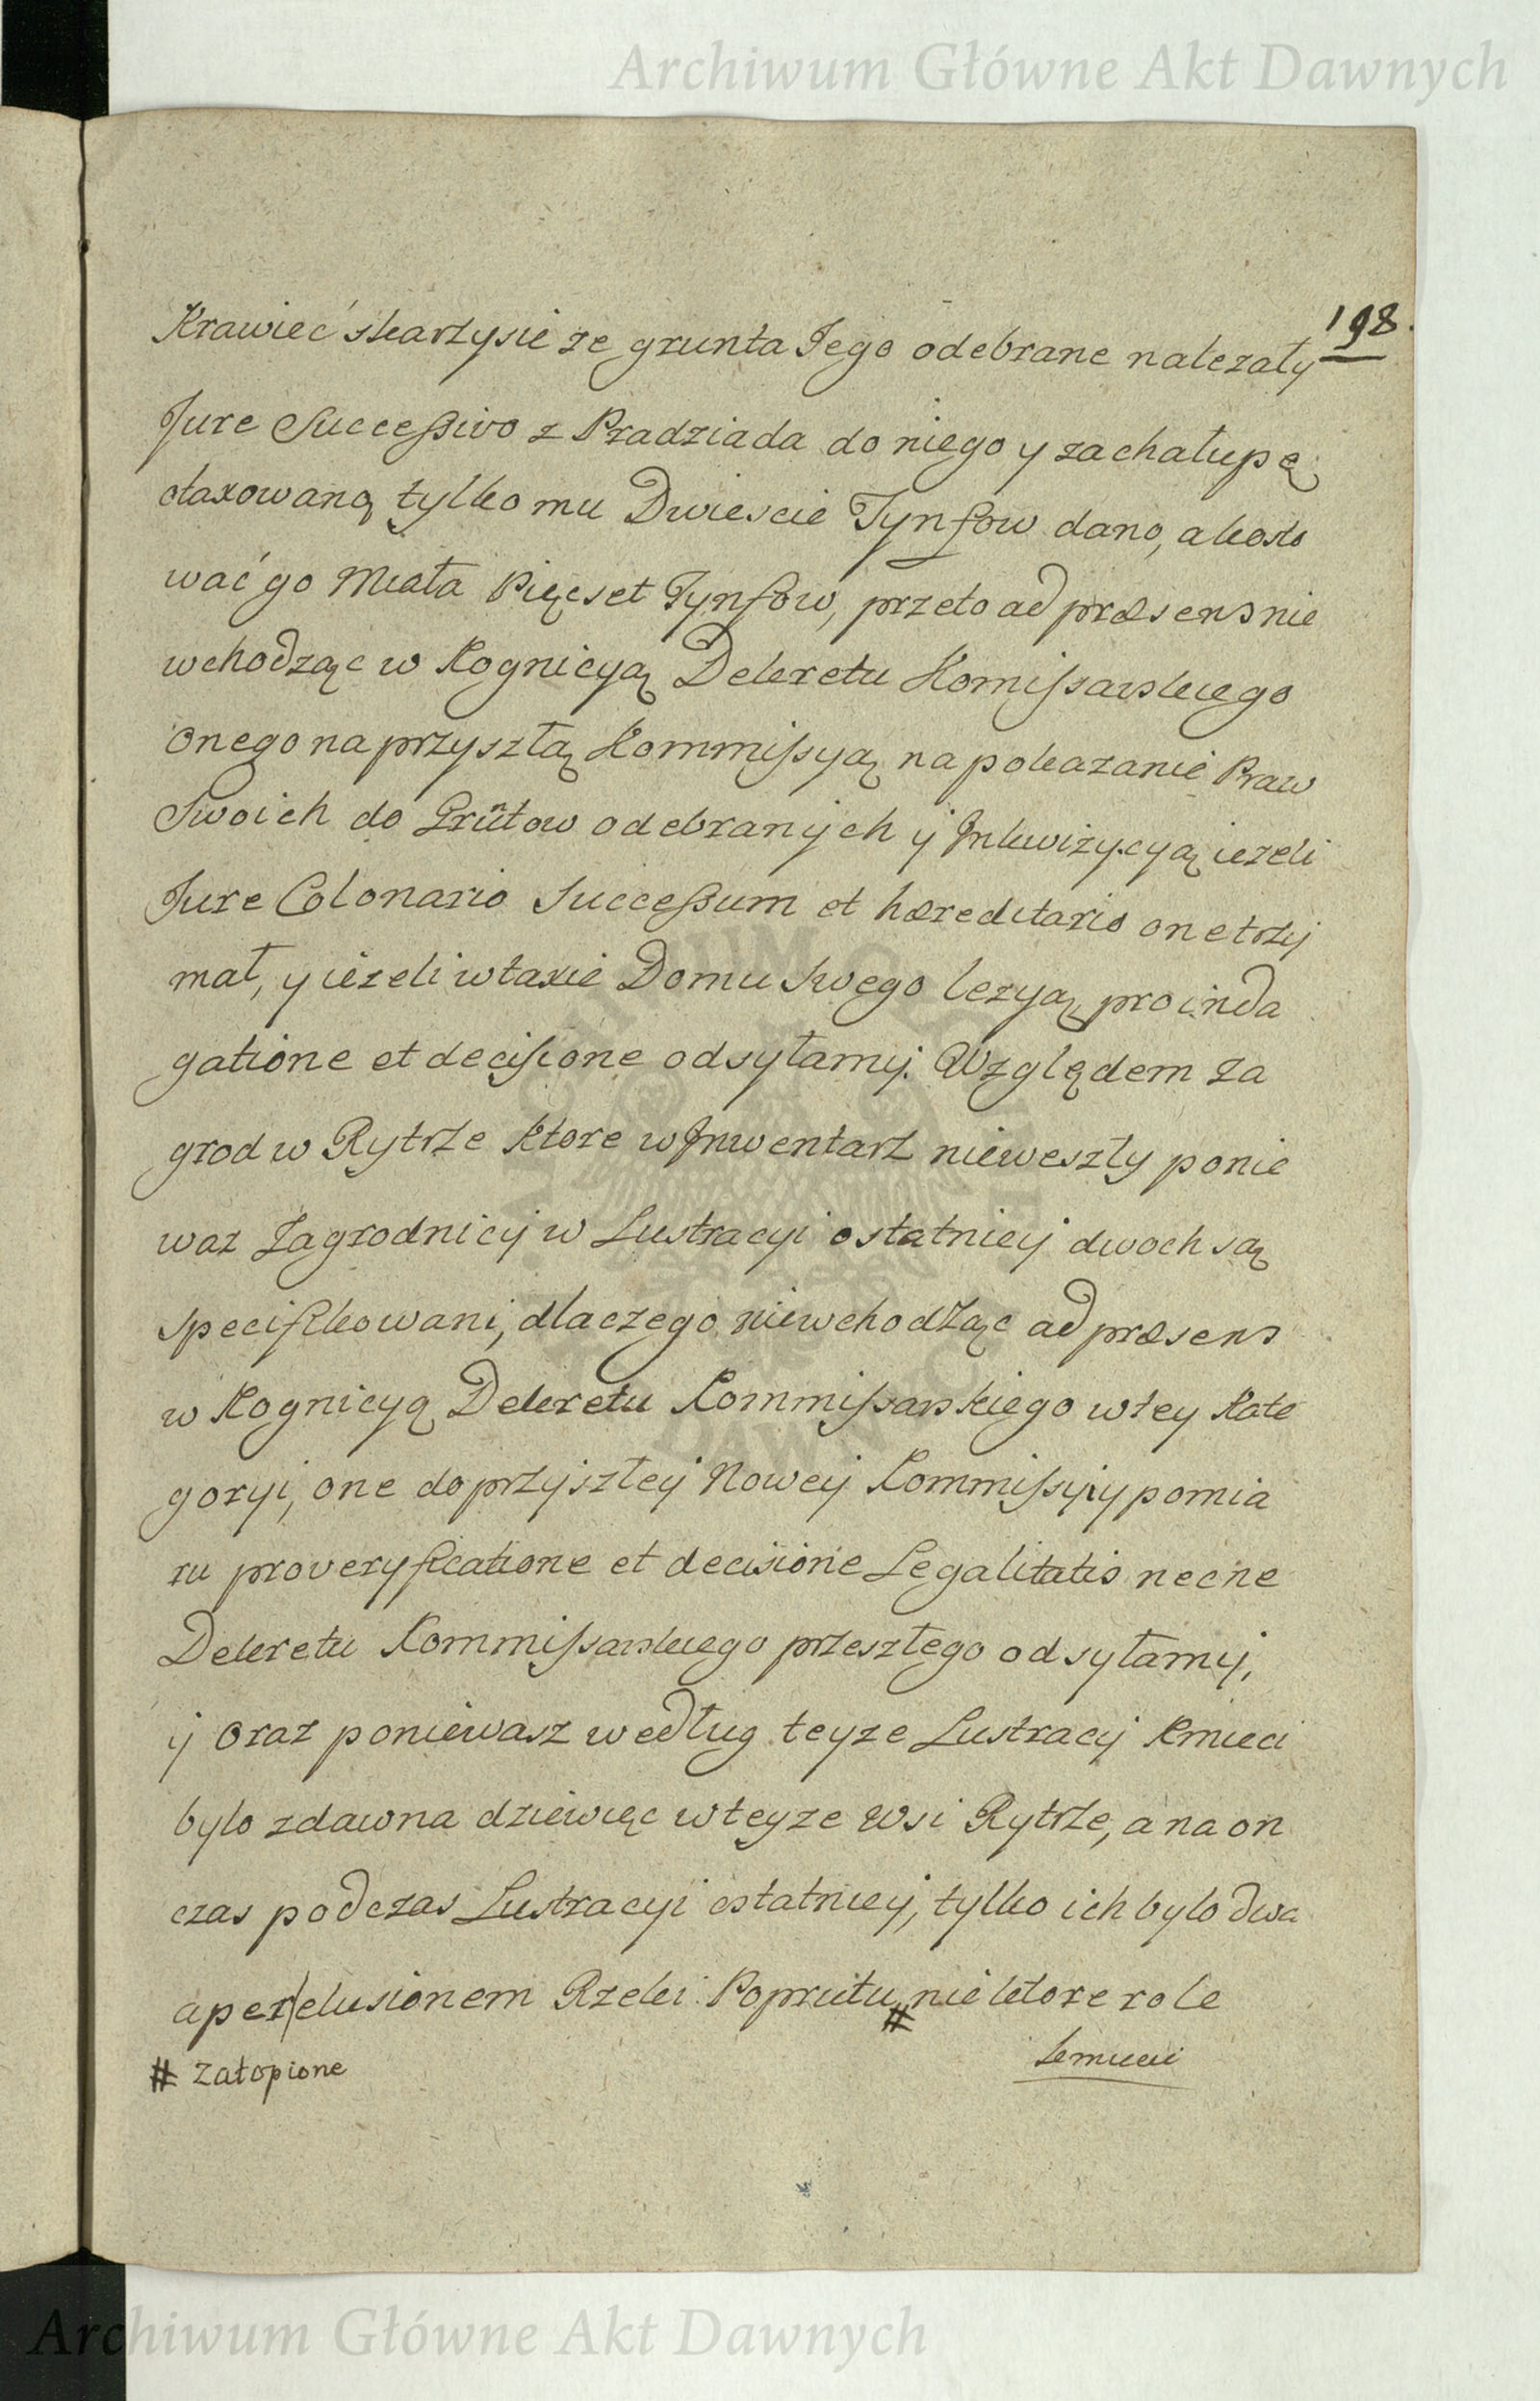 Archiwum Główne Akt Dawnych
198.
Krawieć skarzysie ze grunta Jego odebrane nalezały
Jure Successivo z Pradziada do niego y za chałupę
otaxowaną tylko mu Dwiescie Tynfow dano, a koszto
wać go Miała Pięcset Tynfow, przeto ad præsens nie
wchodząc w Kognicyą Dekretu Komissarskiego
onego na przyszłą Kommissyą na pokazanie Praw
Swoich do Grũtow odebranych y Inkwizycyą iezeli
Jure Colonario Successum et hæreditario one trzy
mał, y iezeli w taxie Domu swego lezyą pro inda
gatione et decisione odsyłamy. Względem Za
grod w Rytrze ktore w Inwentarz nieweszły ponie
waz Zagrodnicy w Lustracyi ostatniey dwoch są
specifikowani, dlaczego niewchodząc ad præsens
w Kognicyą Dekretu Kommissarskiego w tey Kate
goryi, one do przyszłey Nowey Kommissyi y pomia
ru pro veryficatione et decisione Legalitatis necne
Dekretu Kommissarskiego przeszłego odsyłamy,
y oraz poniewasz według teyze Lustracy Kmieci
bylo zdawna dziewięc w teyze Wsi Rytrze, a na on
czas podczas Lustracyi ostatniey, tylko ich bylo dwa
a per elusionem Rzeki Popradu # niektore role
# Zatopione
kmieci
Archiwum Główne Akt Dawnych